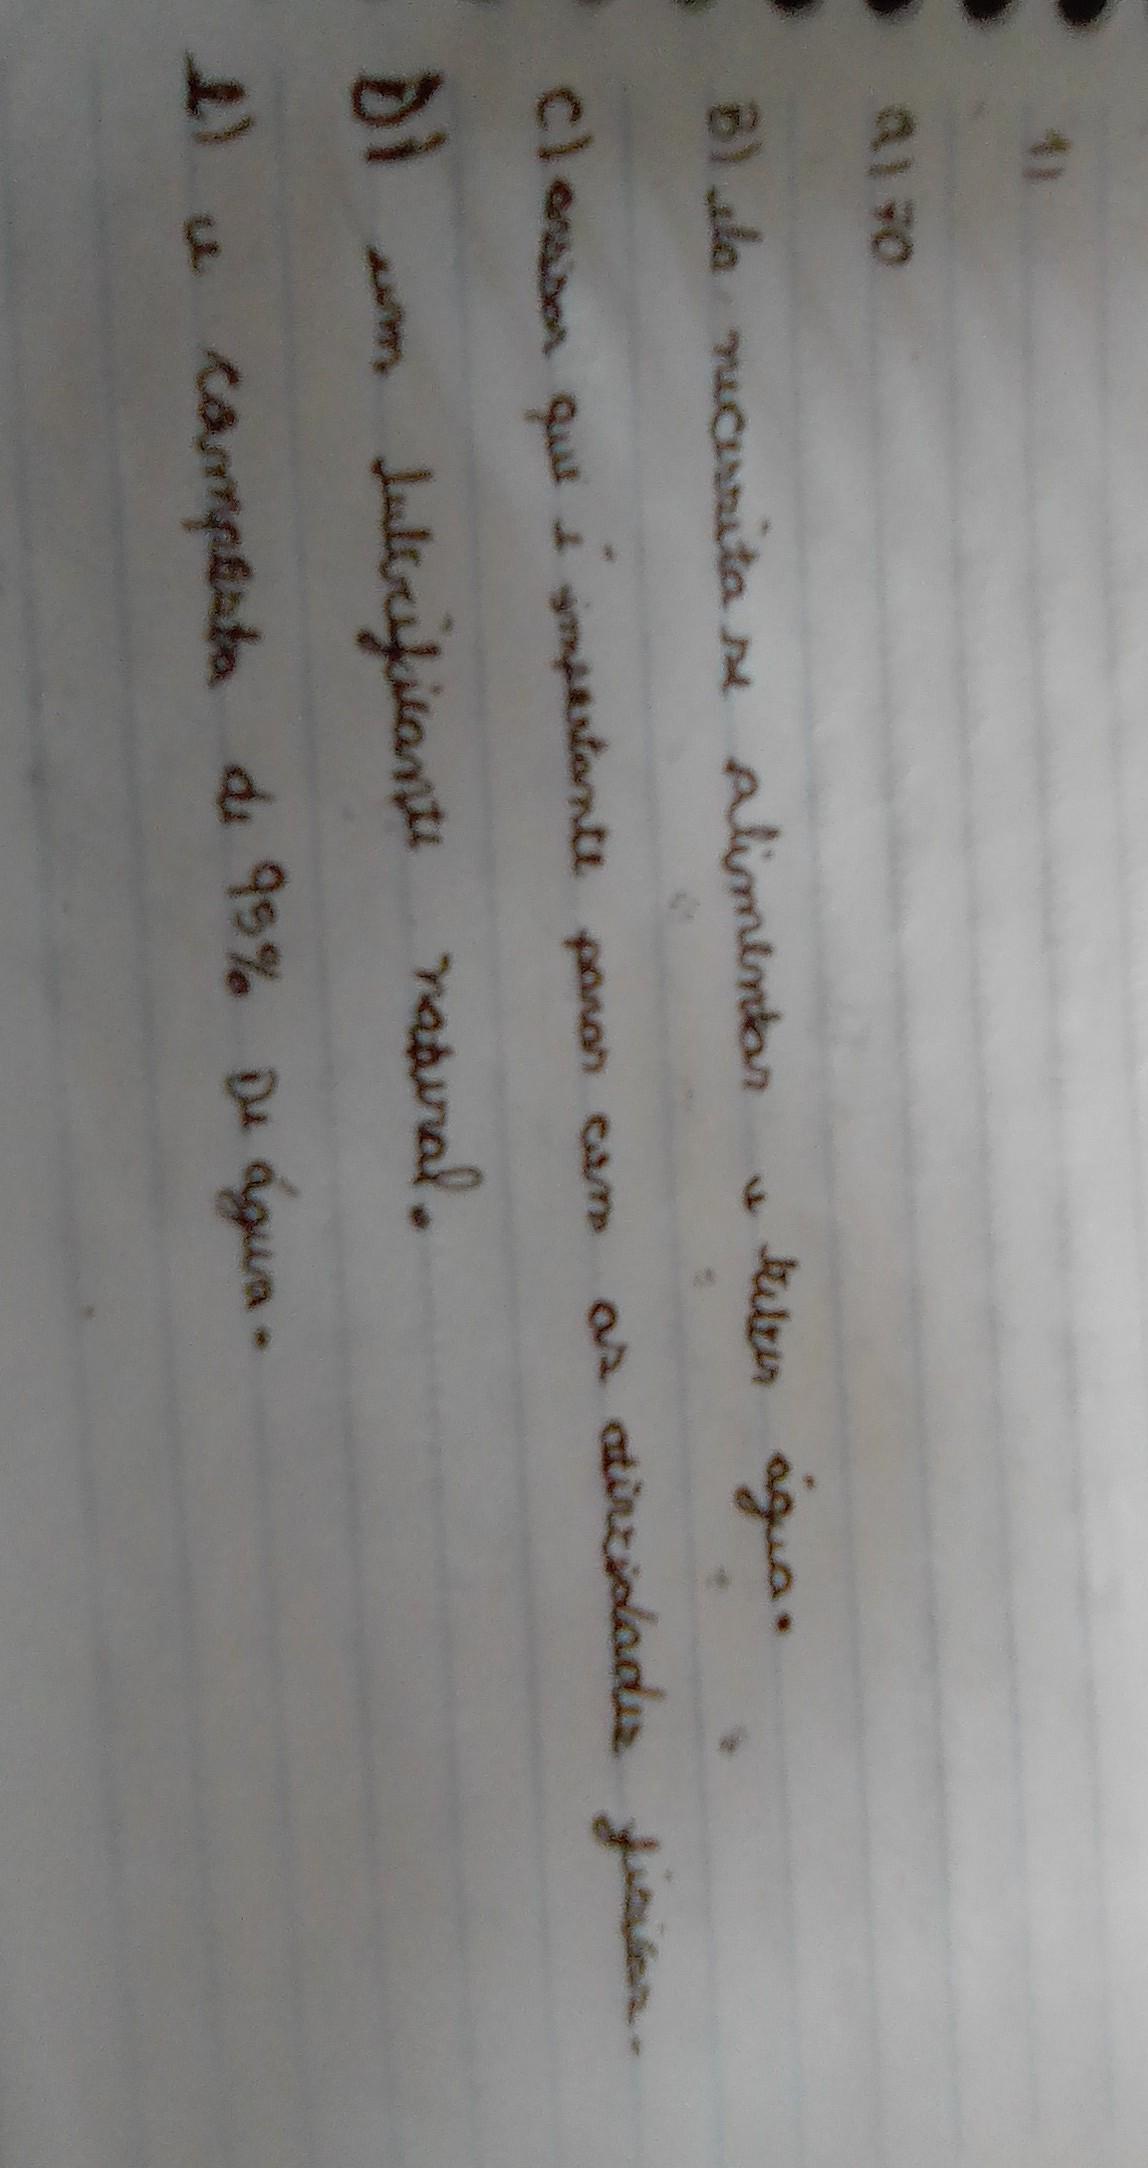 1)
a) 70
B) ela necessita se alimentar e beber água.
C) porque é importante parar com as atividades físicas.
D) um lubrificante natural.
E) e composta de 95% De água.